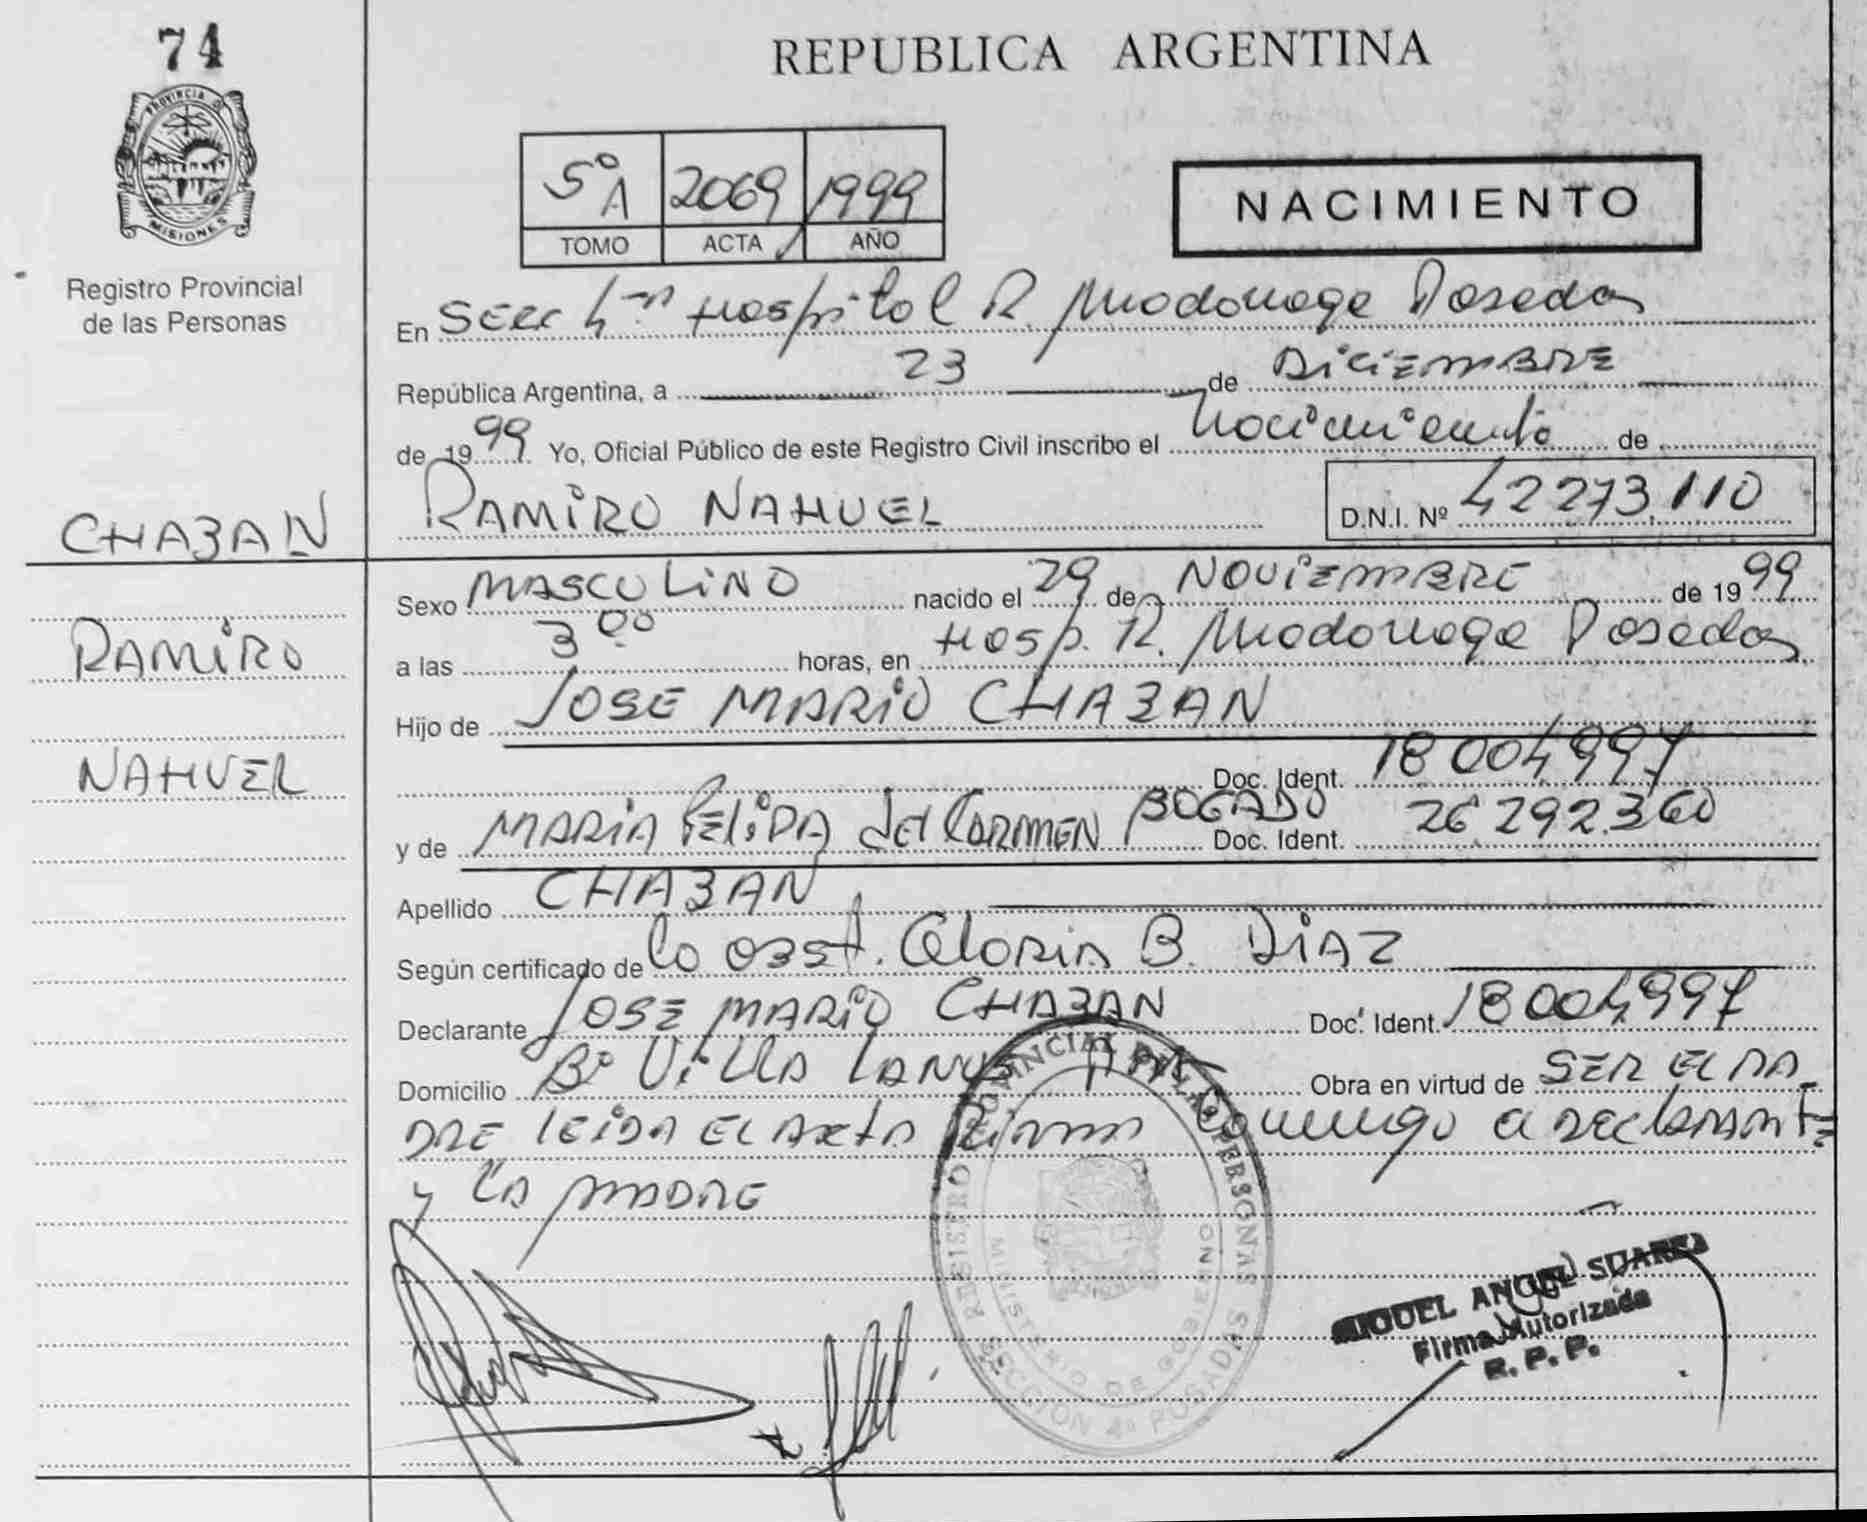 74
PROVINCIA DE
MISIONES
Registro Provincial
de las Personas
REPUBLICA ARGENTINA
5º A 2069 1999
TOMO ACTA AÑO
NACIMIENTO
En Secc 4ta Hospital R. Madariaga Posadas
República Argentina, a 23 de DICIEMBRE
de 1999 Yo, Oficial Público de este Registro Civil inscribo el nacimiento de
CHABAN
RAMIRO NAHUEL
D.N.I. Nº 42273.110
RAMIRO
NAHUEL
Sexo MASCULINO nacido el 29 de NOVIEMBRE de 1999
a las 3 00 horas, en Hosp. R. Madariaga Posadas
Hijo de JOSE MARIO CHABAN
Doc. Ident. 18004997
y de MARIA del CARMEN BOGADO Doc. Ident. 26292360
Apellido CHABAN
Según certificado de la obst. Gloria B. DIAZ
Declarante JOSE MARIO CHABAN Doc. Ident. 18004997
Domicilio Bº Villa Lanus Obra en virtud de SER EL PA
DRE leida el acta Firma conmigo el declarante
y la MADRE
REGISTRO PROVINCIAL DE LAS PERSONAS
SECCION 4ª POSADAS
MINISTERIO DE GOBIERNO
MIGUEL ANGEL SUAREZ
Firma Autorizada
R. P. P.